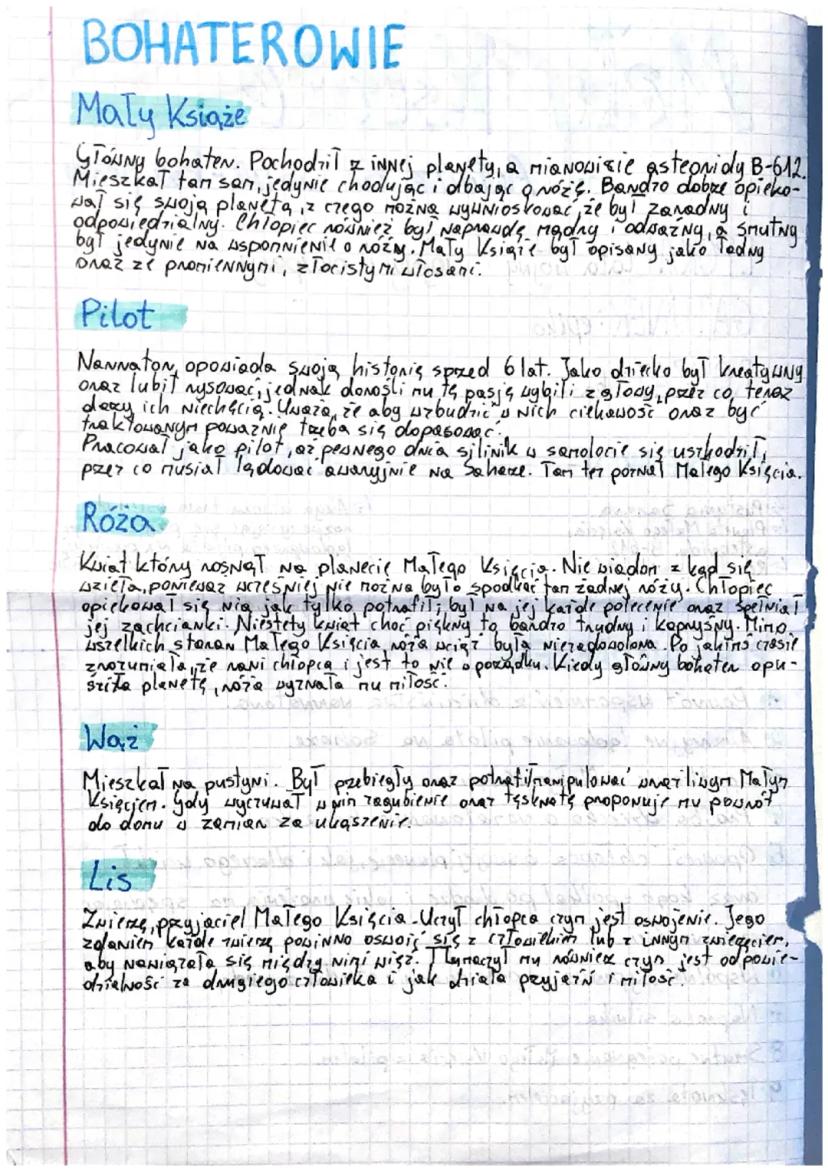 BOHATEROWIE
Mały Książe
Główny bohater. Pochodził z innej planety, a mianowicie asteroidy B-612.
Mieszkał tam sam, jedynie chodując i dbając o różę. Bardzo dobrze opieko-
wał się swoją planetą, z czego można wywnioskować, że był zaradny i
odpowiedzialny. Chłopiec również był naprawdę mądry i odważny, a smutny
był jedynie na wspomnienie o róży. Mały Książe był opisany jako ładny
oraz ze promiennymi, złocistymi włosami.
Pilot
Narrator, opowiada swoją historię sprzed 6 lat. Jako dziecko był kreatywny
oraz lubił rysować, jednak dorośli mu tę pasję wybili z głowy, przez co teraz
darzy ich niechęcią. Uważa, że aby wzbudzić w nich ciekawość oraz być
traktowanym poważnie trzeba się dopasować.
Pracował jako pilot, aż pewnego dnia silinik w samolocie się uszkodził,
przez co musiał lądować awaryjnie na Saharze. Tam też poznał Małego Księcia.
Róża
Kwiat który rosnął na planecie Małego Księcia. Nie wiadom z kąd się
wzięła, ponieważ wcześniej nie można było spodkać tam żadnej róży. Chłopiec
opiekował się nią jak tylko potrafił, był na jej każde polecenie oraz spełniał
jej zachcianki. Niestety kwiat choć piękny to bardzo trudny i kapryśny. Mimo
wszelkich starań Małego Księcia, róża wciąż była niezadowolona. Po jakimś czasie
zrozumiała, że rani chłopca i jest to nie w porządku. Kiedy główny bohater opu-
ściła planetę, róża wyznała mu miłość.
Wąż
Mieszkał na pustyni. Był przebiegły oraz potrafił manipulować wrażliwym Małym
Księciem. Gdy wyczuwał w nim zagubienie oraz tęsknotę proponuje mu powrót
do domu w zamian za ukąszenie.
Lis
Zwierzę, przyjaciel Małego Księcia. Uczył chłopca czym jest oswojenie. Jego
zdaniem każde zwierzę powinno oswoić się z człowiekiem lub z innym zwierzęciem,
aby nawiązała się między nimi więź. Tłumaczył mu również czym jest odpowie-
dzialność za drugiego człowieka i jak działa przyjaźń i miłość.